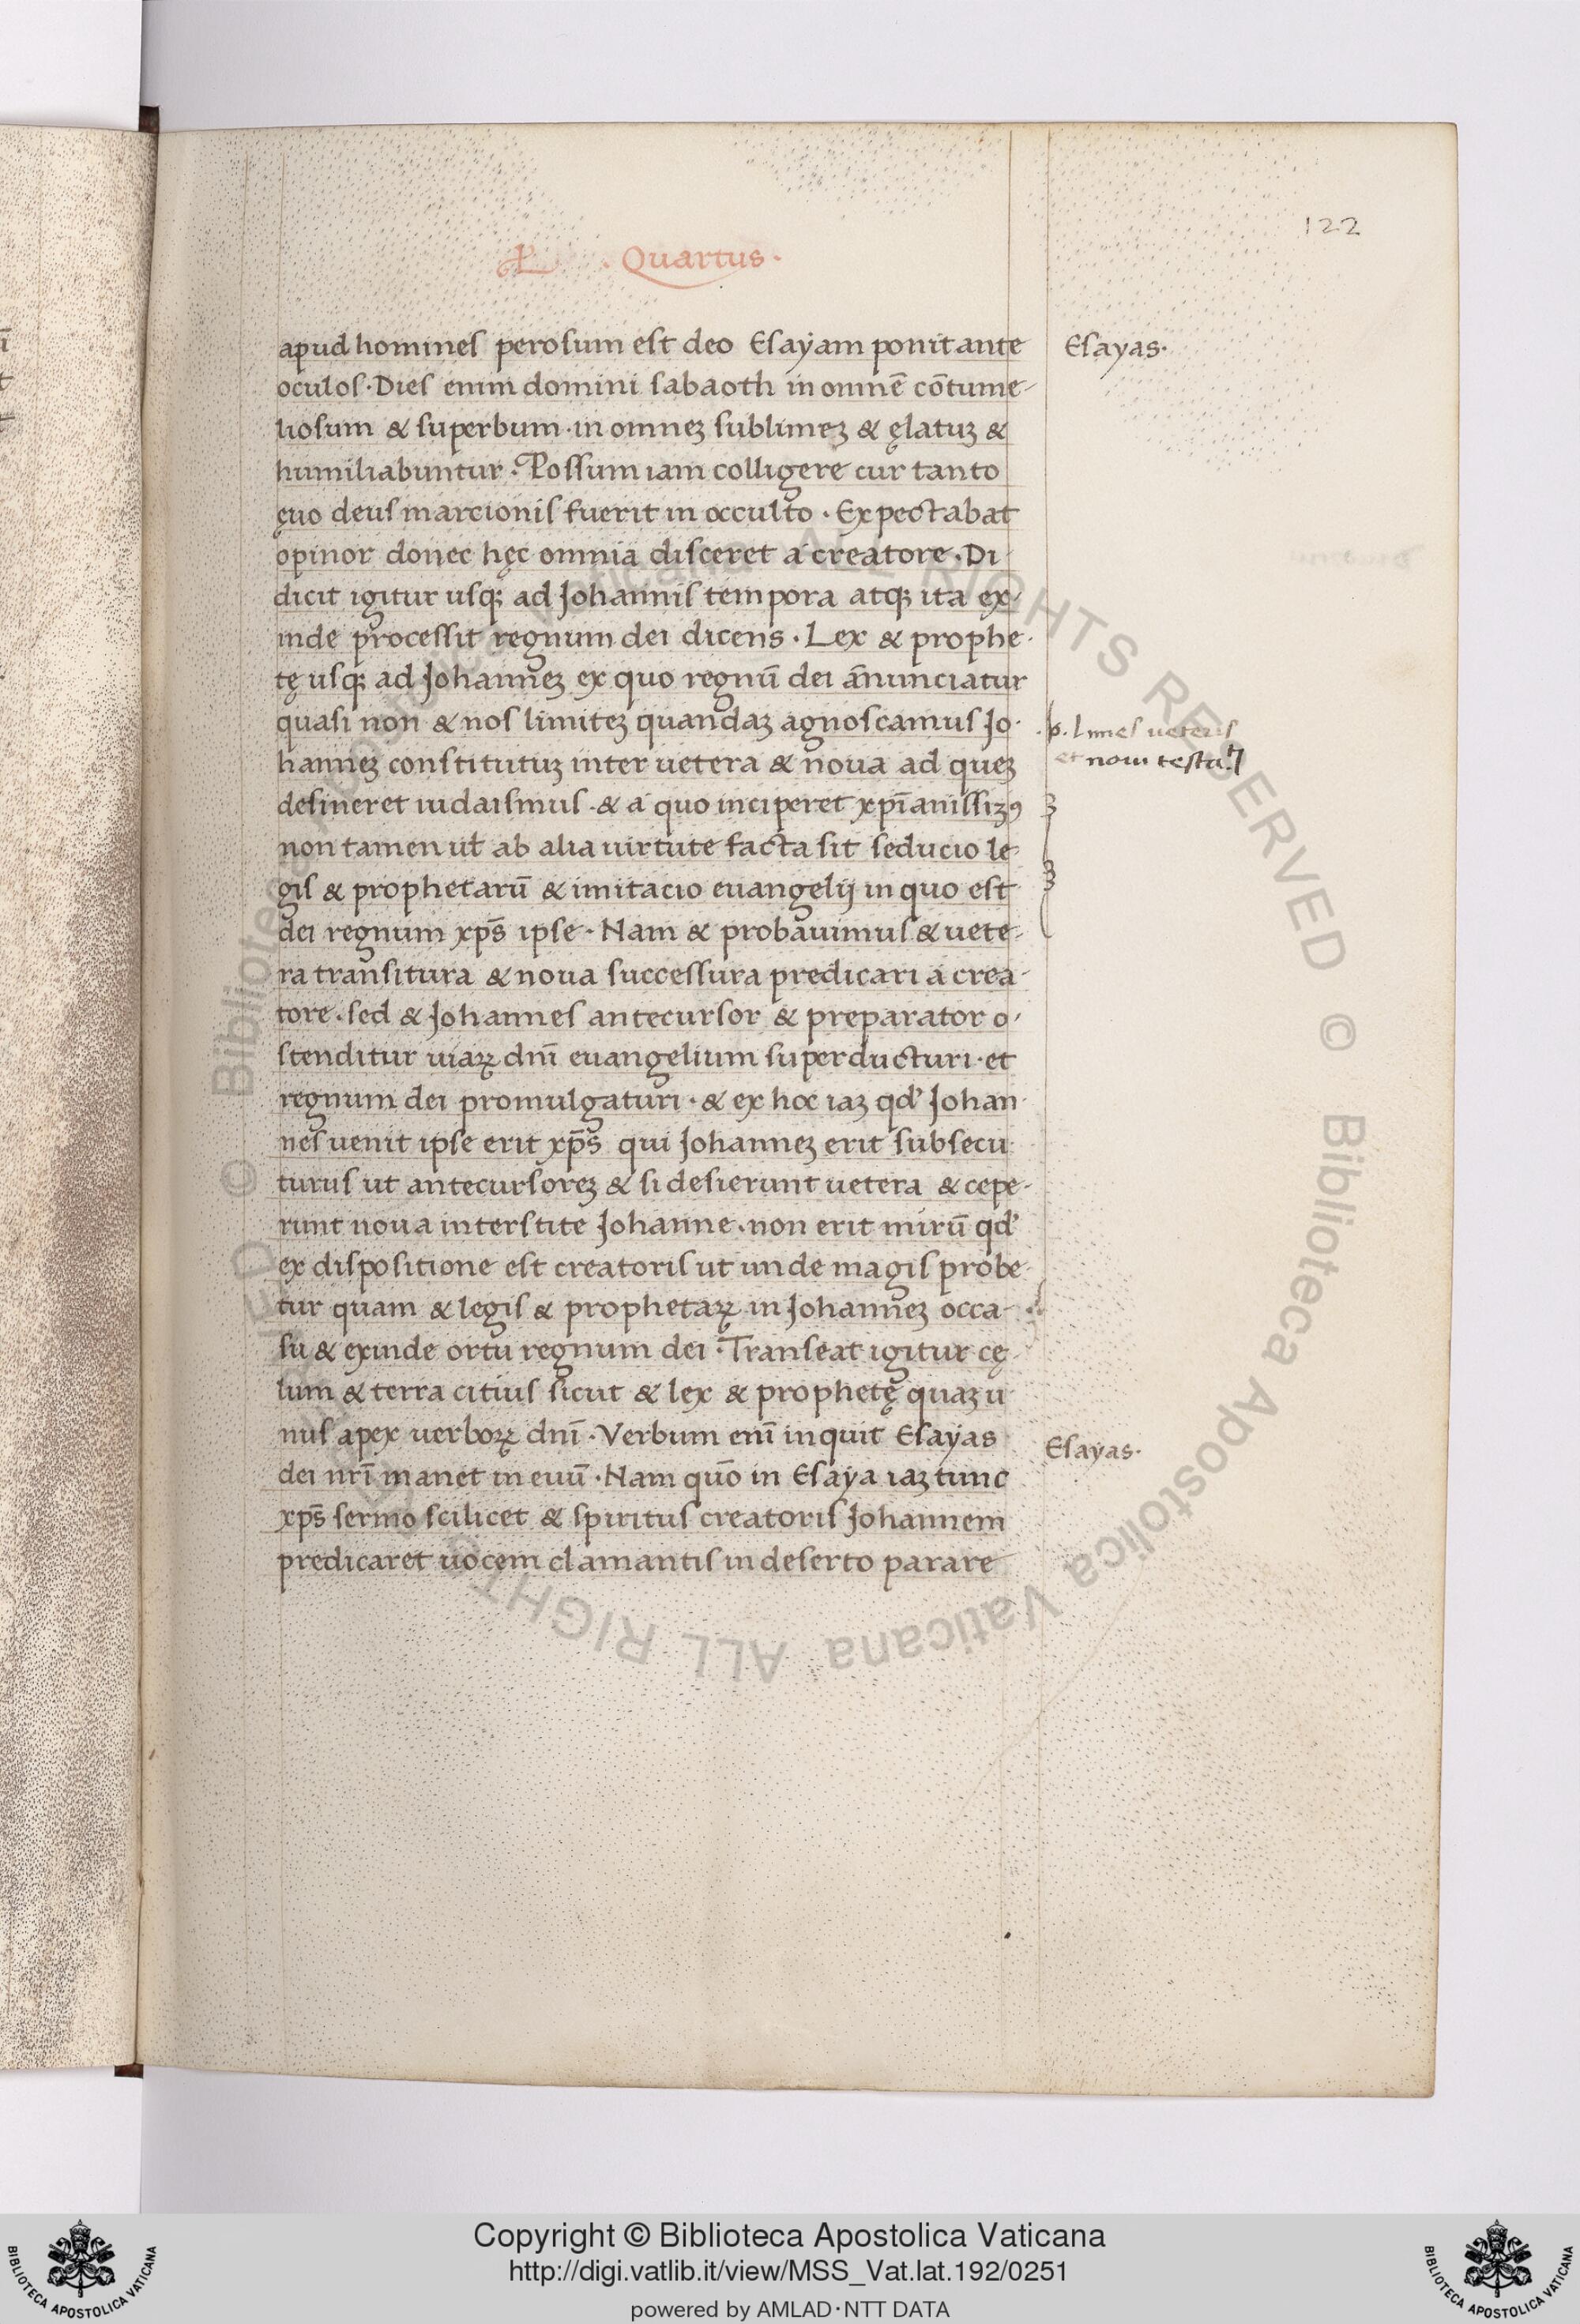 122
L · Quartus ·
apud homines perosum est deo Esayam ponit ante
oculos · Dies enim domini sabaoth in omnē cōtume-
liosum & superbum · in omneꝫ sublimeꝫ & ęlatuꝫ &
humiliabuntur · Possum iam colligere cur tanto
ęuo deus marcionis fuerit in occulto · Expectabat
opinor donec hęc omnia disceret a creatore · Di-
dicit igitur usqꝫ ad Johannis tempora atqꝫ ita ex-
inde processit regnum dei dicens · Lex & prophe-
tę usqꝫ ad Johanneꝫ ex quo regnū dei ānunciatur
quasi non & nos limiteꝫ quandaꝫ agnoscamus Jo-
hanneꝫ constitutuꝫ inter uetera & noua ad queꝫ
desineret iudaismus · & a quo inciperet xp̄ianissiꝫꝰ
non tamen ut ab alia uirtute facta sit seducio le-
gis & prophetarū & imitacio euangelij in quo est
dei regnum xp̄s ipse · Nam & probauimus & uete-
ra transitura & noua successura predicari a crea-
tore · sed & Johannes antecursor & preparator o-
stenditur uiaꝝ dnī euangelium superducturi · et
regnum dei promulgaturi · & ex hoc iaꝫ qd' Johan-
nes uenit ipse erit xp̄s qui Johanneꝫ erit subsecu-
turus ut antecursoreꝫ & si desierunt uetera & cepe-
runt noua interstite Johanne · non erit mirū qd'
ex dispositione est creatoris ut unde magis probe-
tur quam & legis & prophetaꝝ in Johanneꝫ occa-
su & exinde ortu regnum dei · Transeat igitur cę-
lum & terra citius sicut & lex & prophetę quaꝫ u-
nus apex uerboꝝ dnī · Verbum enī inquit Esayas
dei nrī manet in euū · Nam quō in Esaya iaꝫ tunc
xp̄s sermo scilicet & spiritus creatoris Johannem
predicaret uocem clamantis in deserto parare
Esayas ·
limes ueteris
et noui testa
Esayas ·
© Biblioteca Apostolica Vaticana ALL RIGHTS RESERVED © Biblioteca Apostolica Vaticana ALL RIGHTS RESERVED
Copyright © Biblioteca Apostolica Vaticana
http://digi.vatlib.it/view/MSS_Vat.lat.192/0251
powered by AMLAD·NTT DATA
BIBLIOTECA APOSTOLICA VATICANA
BIBLIOTECA APOSTOLICA VATICANA